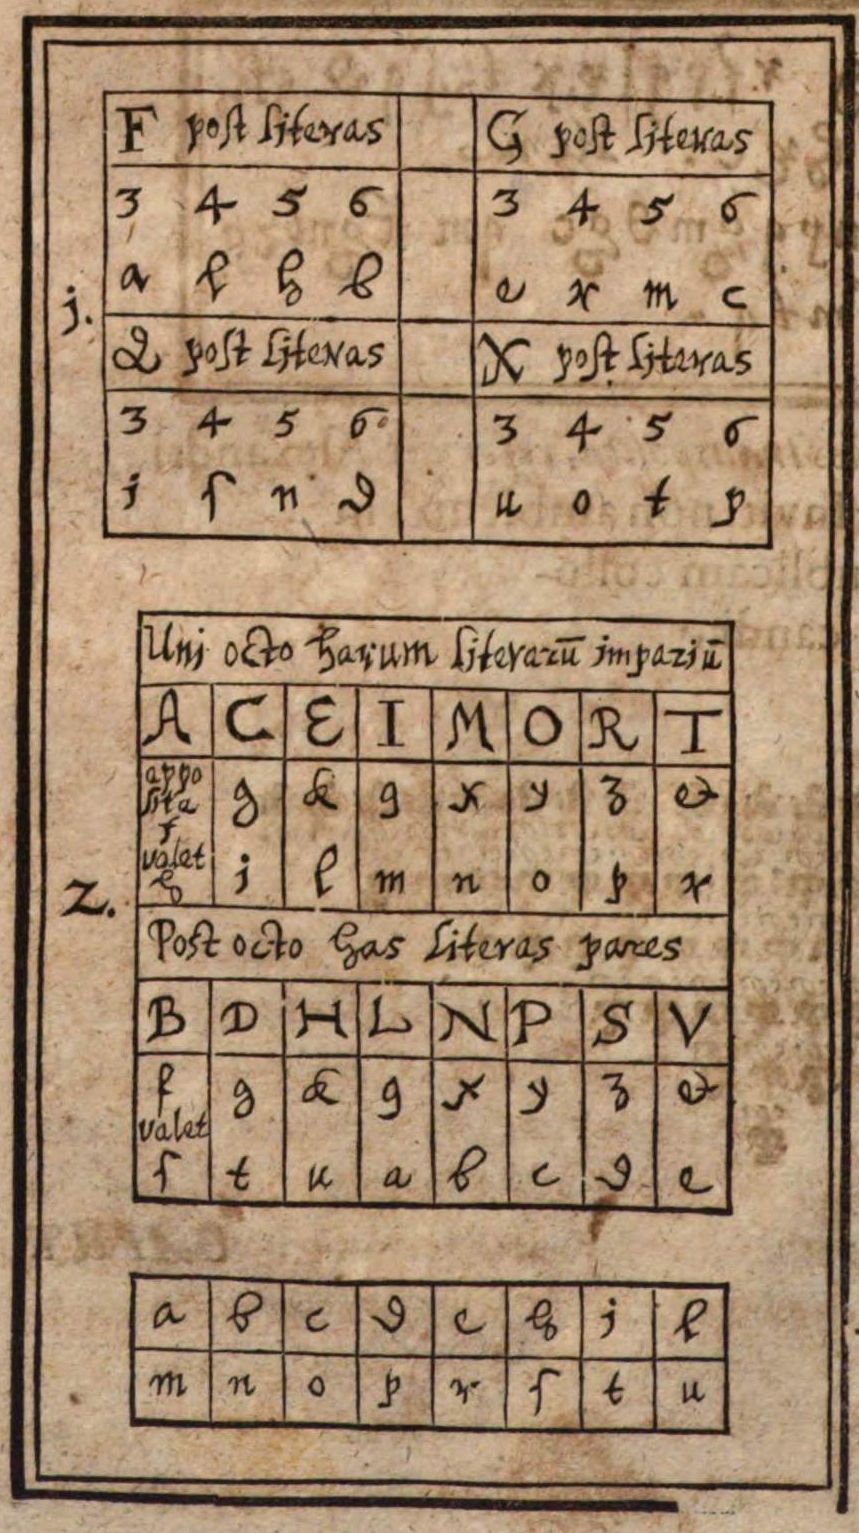 F post literas G post literas
3 4 5 6 3 4 5 6
a l h b e r m c
j.
Q post literas X post literas
3 4 5 6 3 4 5 6
j ſ n d u o t p
Unj octo harum literarū jmpariū
A C E I M O R T
appo
sita
f g k q x y z &
valet
h j l m n o p r
2.
Post octo has literas pares
B D H L N P S V
f g k q x y z &
valet
ſ t u a b c d e
a b c d e h j l
m n o p r ſ t u